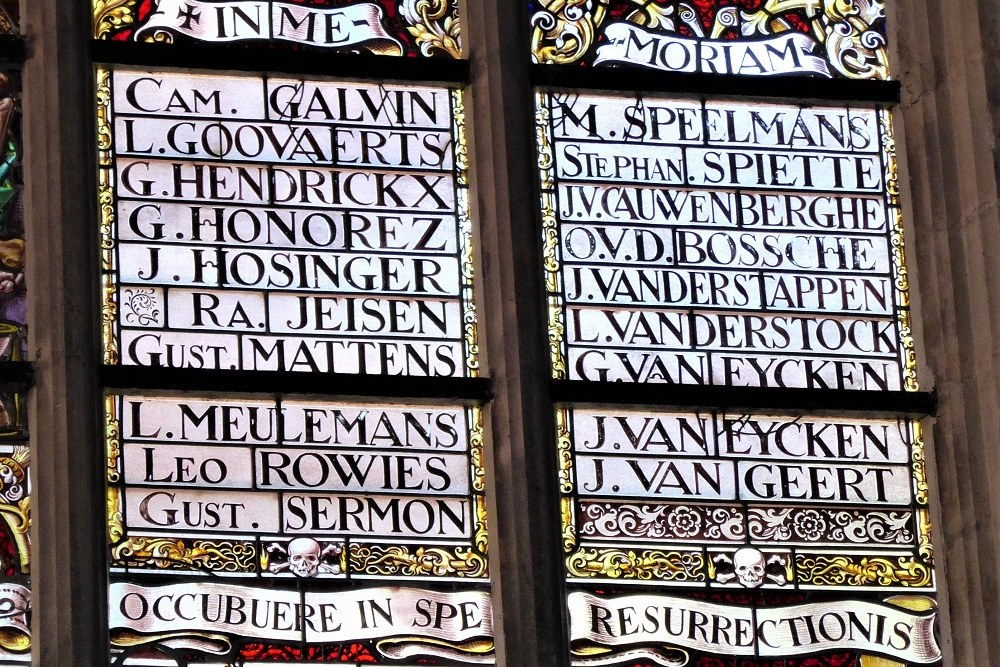 IN ME-
CAM. GALVIN
L. GOOVAERTS
G. HENDRICKX
G. HONOREZ
J. HOSINGER
RA. JEISEN
GUST. MATTENS
L. MEULEMANS
LEO ROWIES
GUST. SERMON
OCCUBUERE IN SPE
MORIAM
M. SPEELMANS
STEPHAN. SPIETTE
J.V. CAUWENBERGHE
O.V.D. BOSSCHE
J. VANDERSTAPPEN
L. VANDERSTOCK
G. VAN EYCKEN
J. VAN EYCKEN
J. VAN GEERT
RESURRECTIONIS